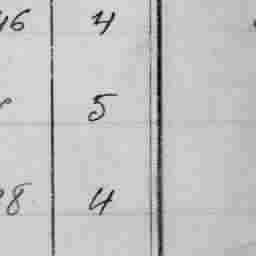 46 4
5
8 4